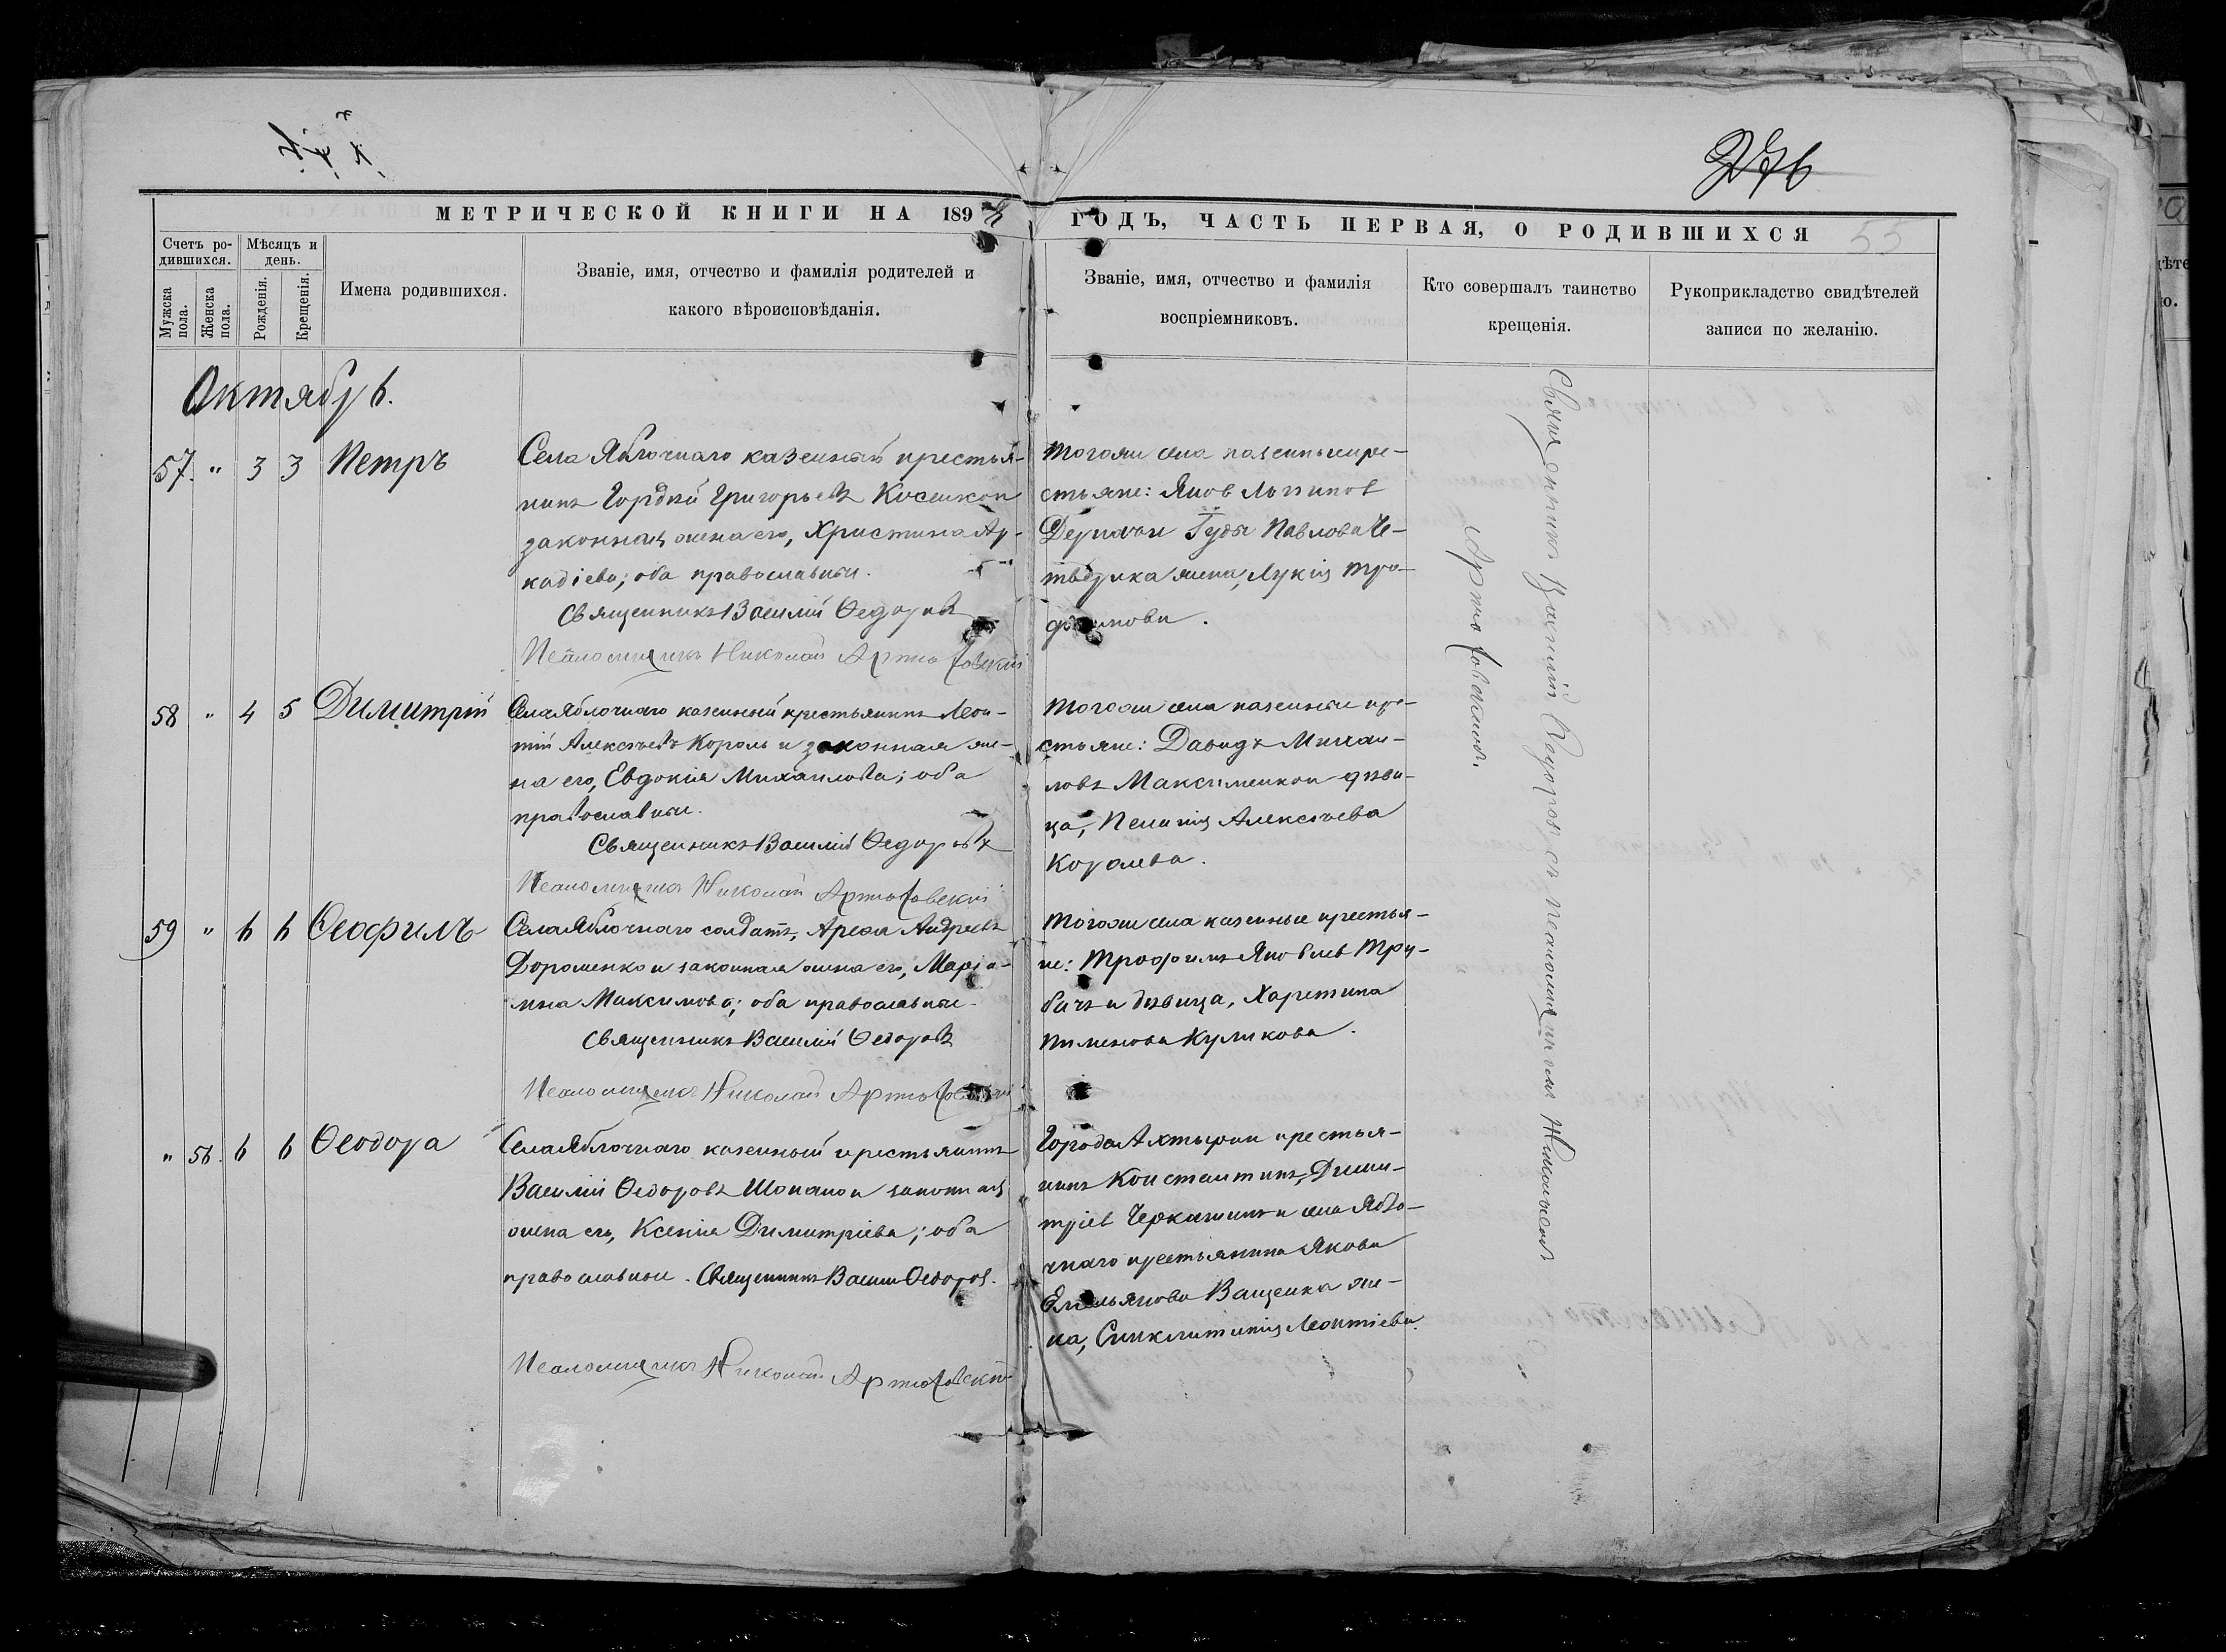 276
МЕТРИЧЕСКОЙ КНИГИ НА 189
ГОДЪ, ЧАСТЬ ПЕРВАЯ, О РОДИВШИХСЯ
55
Счетъ ро-
дившихся.
Мужска
пола.
Женска
пола.
Мѣсяцъ и
день.
Рожденія.
Крещенія.
Имена родившихся.
Званіе, имя, отчество и фамилія родителей и
какого вѣроисповѣданія.
Званіе, имя, отчество и фамилія
воспріемниковъ.
Кто совершалъ таинство
крещенія.
Рукоприкладство свидѣтелей
записи по желанію.
Октябрь.
57. " 3 3 Петръ
Села Яблочнаго казенный крестья-
нинъ Гордѣй Григорьевъ
законная жена его, Христина Ар-
кадіева; оба православные.
Священникъ Василій Ѳедоровъ
Псаломщикъ Николай Артюховскій
Тогоже села казенные кре-
стьяне: Яков Логинов
Іуды Павлова Че-
жена, Лукія Тро-
фимова.
58 " 4 5 Димитрій
Села Яблочнаго казенный крестьянинъ Леон-
тій Алексѣевъ Король и законная же-
на его, Евдокія Михаилова; оба
православные.
Священникъ Василій Ѳедоровъ
Псаломщикъ Николай Артюховскій
Тогоже села казенные кре-
стьяне: Давидъ Михаи-
ловъ Максименко и дѣви-
ца, Алексѣева
Королева.
59 " 6 6 Ѳеофилъ
Села Яблочнаго солдатъ, Арефа Андреевъ
Дорошенко и законная жена его, Маріа-
мна Максимова; оба православные.
Священникъ Василій Ѳедоровъ
Псаломщикъ Николай Артюховскій
Тогоже села казенные крестья-
не: Трофимъ Яковлев Тру-
бачъ и дѣвица, Харитина
Пименова Куликова.
" 56. 6 6 Ѳеодора
Села Яблочнаго казенный крестьянинъ
Василій Ѳедоровъ и законная
жена его, Ксенія Димитріева; оба
православные. Священникъ Василій Ѳедоров.
Псаломщикъ Николай Артюховскій
Города Ахтырки крестья-
нинъ Константинъ Дими-
тріев Черкашинъ и села Ябло-
чнаго крестьянина Якова
Емельянова Ващенка же-
на, Синклитикія Леонтіева.
Священникъ Василій Ѳедоров съ псаломщикомъ Николаемъ
Артюховскимъ.